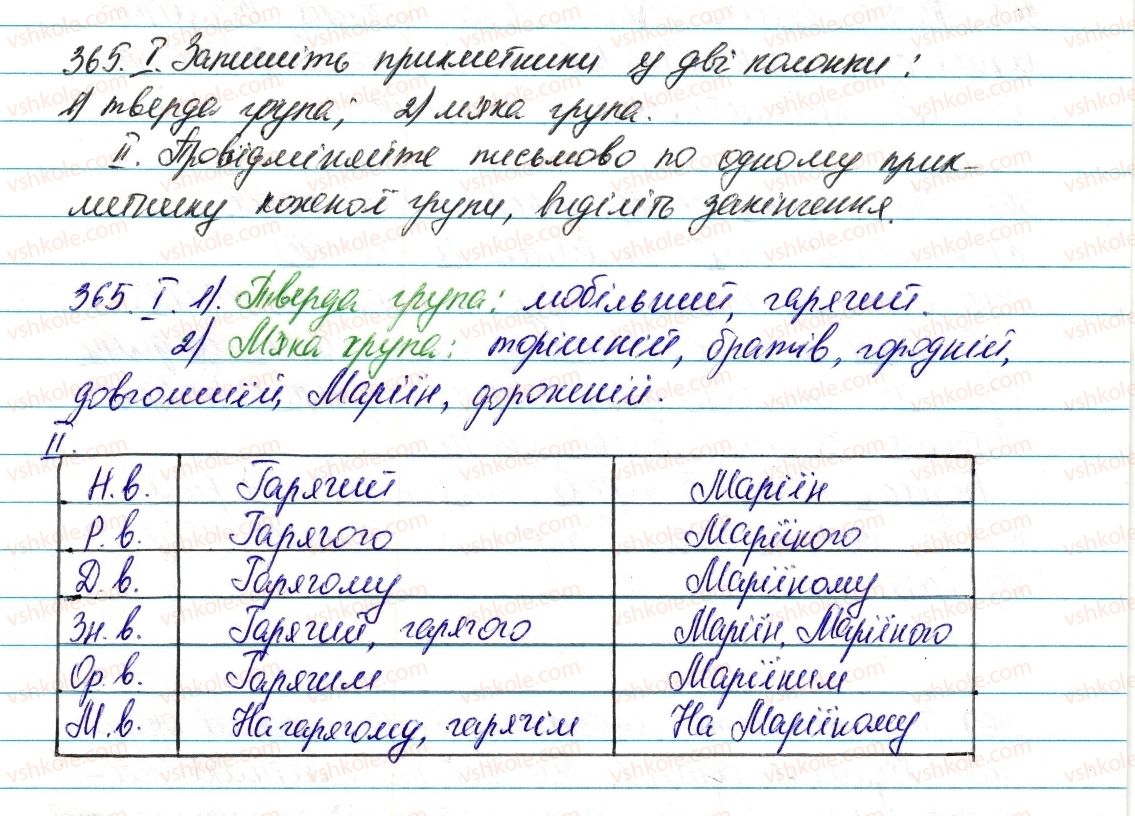 365. I. Запишіть прикметники у дві колонки:
1) тверда група; 2) м'яка група.
II. Провідміняйте письмово по одному прик-
метнику кожної групи, виділіть закінчення.
365. I. 1). Тверда група: мобільний, гарячий.
2) М'яка група: торішній, братів, городній,
довгошиїй, Маріїн, дорожній.
II.
Н. в. Гарячий Маріїн
Р. в. Гарячого Маріїного
Д. в. Гарячому Маріїному
Зн. в. Гарячий, гарячого Маріїн, Маріїного
Ор. в. Гарячим Маріїним
М. в. На гарячому, гарячім На Маріїному